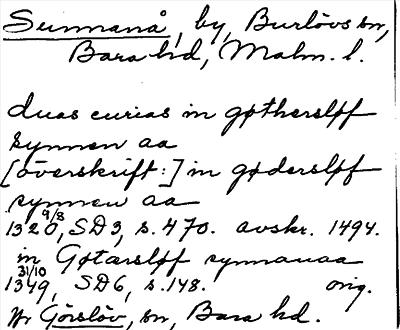 Sunnanå, by, Burlövs sn,
Bara hd, Malm. l.
duas curias in gøthersløf
synnen aa
[överskrift:] in gødersløf
synnen aa
1320 9/8, SD3, s. 470. avskr. 1494.
in Gøtærsløf synnanaa
1349 31/10, SD6, s. 148. orig.
Görslöv, sn, Bara hd.